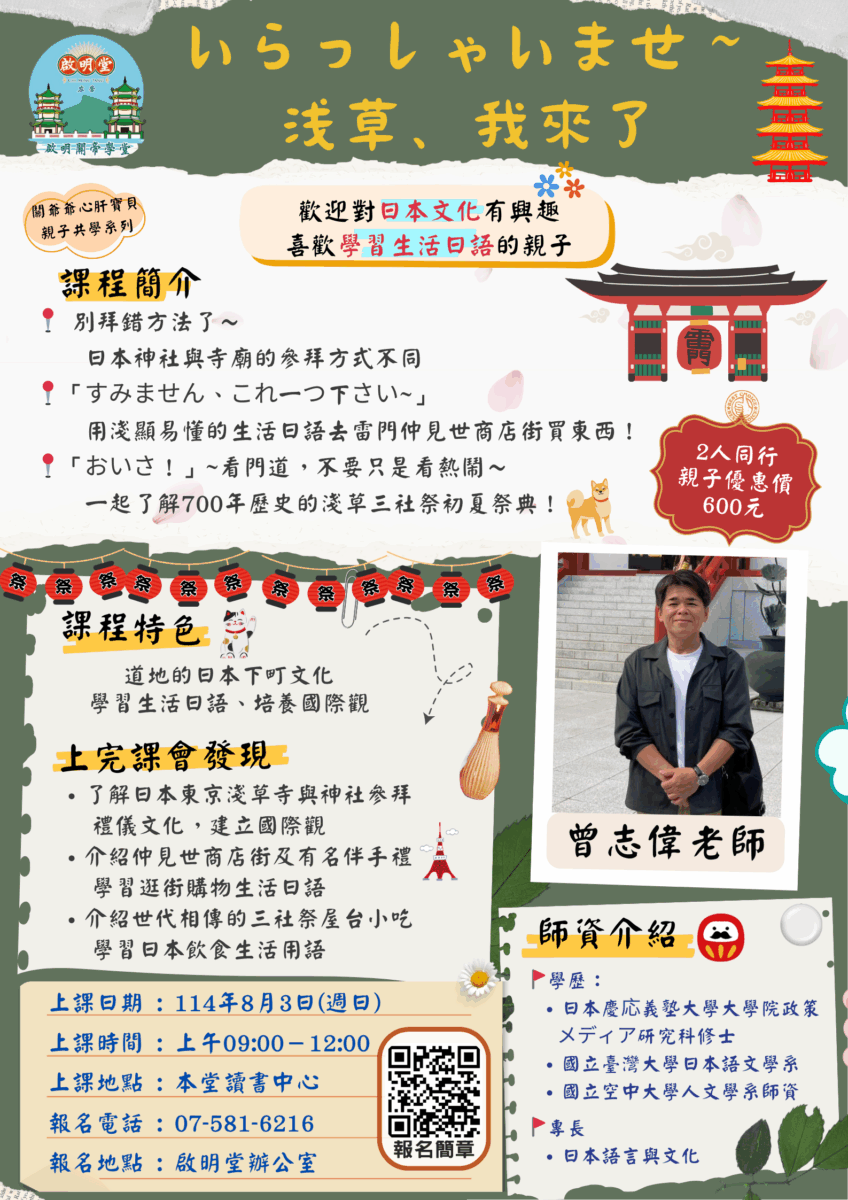 いらっしゃいませ～
浅草、我來了
啟明堂
啟明關帝學堂
關爺爺心肝寶貝
親子共學系列
歡迎對日本文化有興趣
喜歡學習生活日語的親子
課程簡介
別拜錯方法了～
日本神社與寺廟的參拜方式不同
「すみません、これ一つ下さい~」
用淺顯易懂的生活日語去雷門仲見世商店街買東西！
「おいさ！」~看門道，不要只是看熱鬧～
一起了解700年歷史的淺草三社祭初夏祭典！
2人同行
親子優惠價
600元
祭 祭 祭 祭 祭 祭 祭 祭 祭 祭 祭 祭
課程特色
道地的日本下町文化
學習生活日語、培養國際觀
上完課會發現
• 了解日本東京淺草寺與神社參拜
禮儀文化，建立國際觀
• 介紹仲見世商店街及有名伴手禮
學習逛街購物生活日語
• 介紹世代相傳的三社祭屋台小吃
學習日本飲食生活用語
曾志偉老師
師資介紹
學歷：
• 日本慶応義塾大學大學院政策
メディア研究科修士
• 國立臺灣大學日本語文學系
• 國立空中大學人文學系師資
專長
• 日本語言與文化
上課日期：114年8月3日(週日)
上課時間：上午09:00－12:00
上課地點：本堂讀書中心
報名電話：07-581-6216
報名地點：啟明堂辦公室
報名簡章